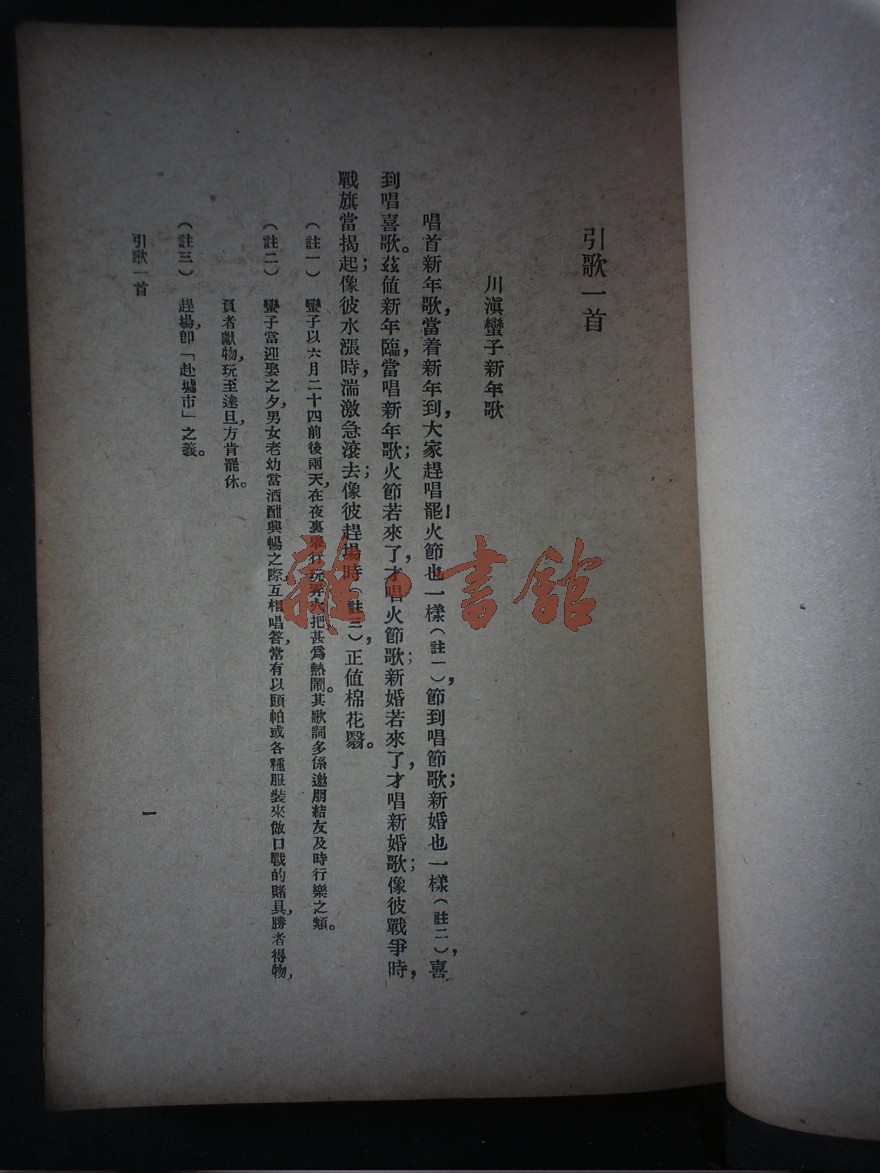 引歌一首
川滇蠻子新年歌
唱首新年歌，當着新年到，大家趕唱罷！火節也一樣（註一），節到唱節歌；新婚也一樣（註二），喜
到唱喜歌。茲值新年臨，當唱新年歌；火節若來了，才唱火節歌；新婚若來了，才唱新婚歌；像彼戰爭時，
戰旗當揭起；像彼水漲時，湍激急滾去；像彼趕場時（註三），正值棉花翳。
（註一） 蠻子以六月二十四前後兩天，在夜裏舉行玩弄火把，甚爲熱鬧。其歌詞多係邀朋結友及時行樂之類。
（註二） 蠻子當迎娶之夕，男女老幼當酒酣興暢之際，互相唱答，常有以頭帕或各種服裝來做口戰的賭具，勝者得物，
負者獻物，玩至達旦，方肯罷休。
（註三） 趕場，卽「赴墟市」之義。
引歌一首
一
雜·書館